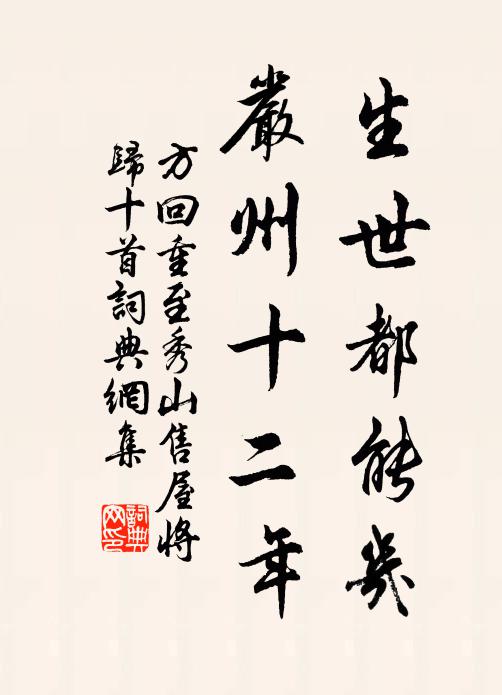 生世都能幾
嚴州十二年
方回重至秀山售屋將
歸十首詞典網集
詞典
网印